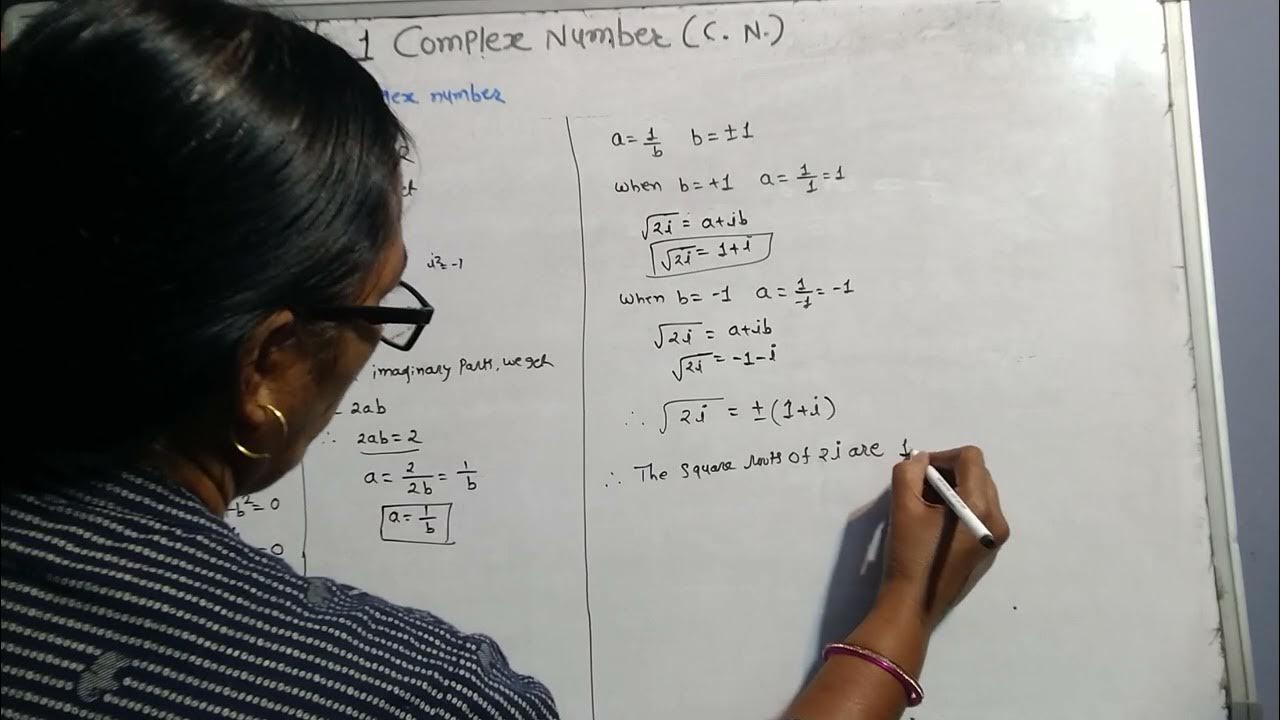 1 Complex Number (C. N.)
number
i² = -1
imaginary Parts, we get
2ab
∴ 2ab = 2
a = 2/2b = 1/b
b² = 0
a = 1/b
= 0
a = 1/b b = ±1
when b = +1 a = 1/1 = 1
√2i = a+ib
√2i = 1+i
when b = -1 a = 1/-1 = -1
√2i = a+ib
√2i = -1-i
∴ √2i = ±(1+i)
∴ The Square roots of 2i are 1